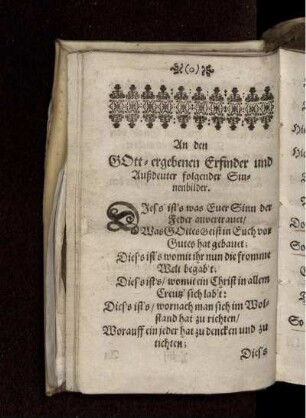 (o)
An den
GOtt-ergebenen Erfinder und
Außdeuter folgender Sin-
nenbilder.
DIeß's ist's was Euer Sinn der
Feder anvertrauet/
Was GOttes Geist in Euch vor
Gutes hat gebauet;
Dieß's ist's womit ihr nun die fromme
Welt begab't;
Dieß's ist's/ womit ein Christ in allem
Creutz' sich lab't:
Dieß's ist's/ wornach man sich im Wol-
stand hat zu richten/
Worauff ein jeder hat zu dencken und zu
tichten;
Dieß's